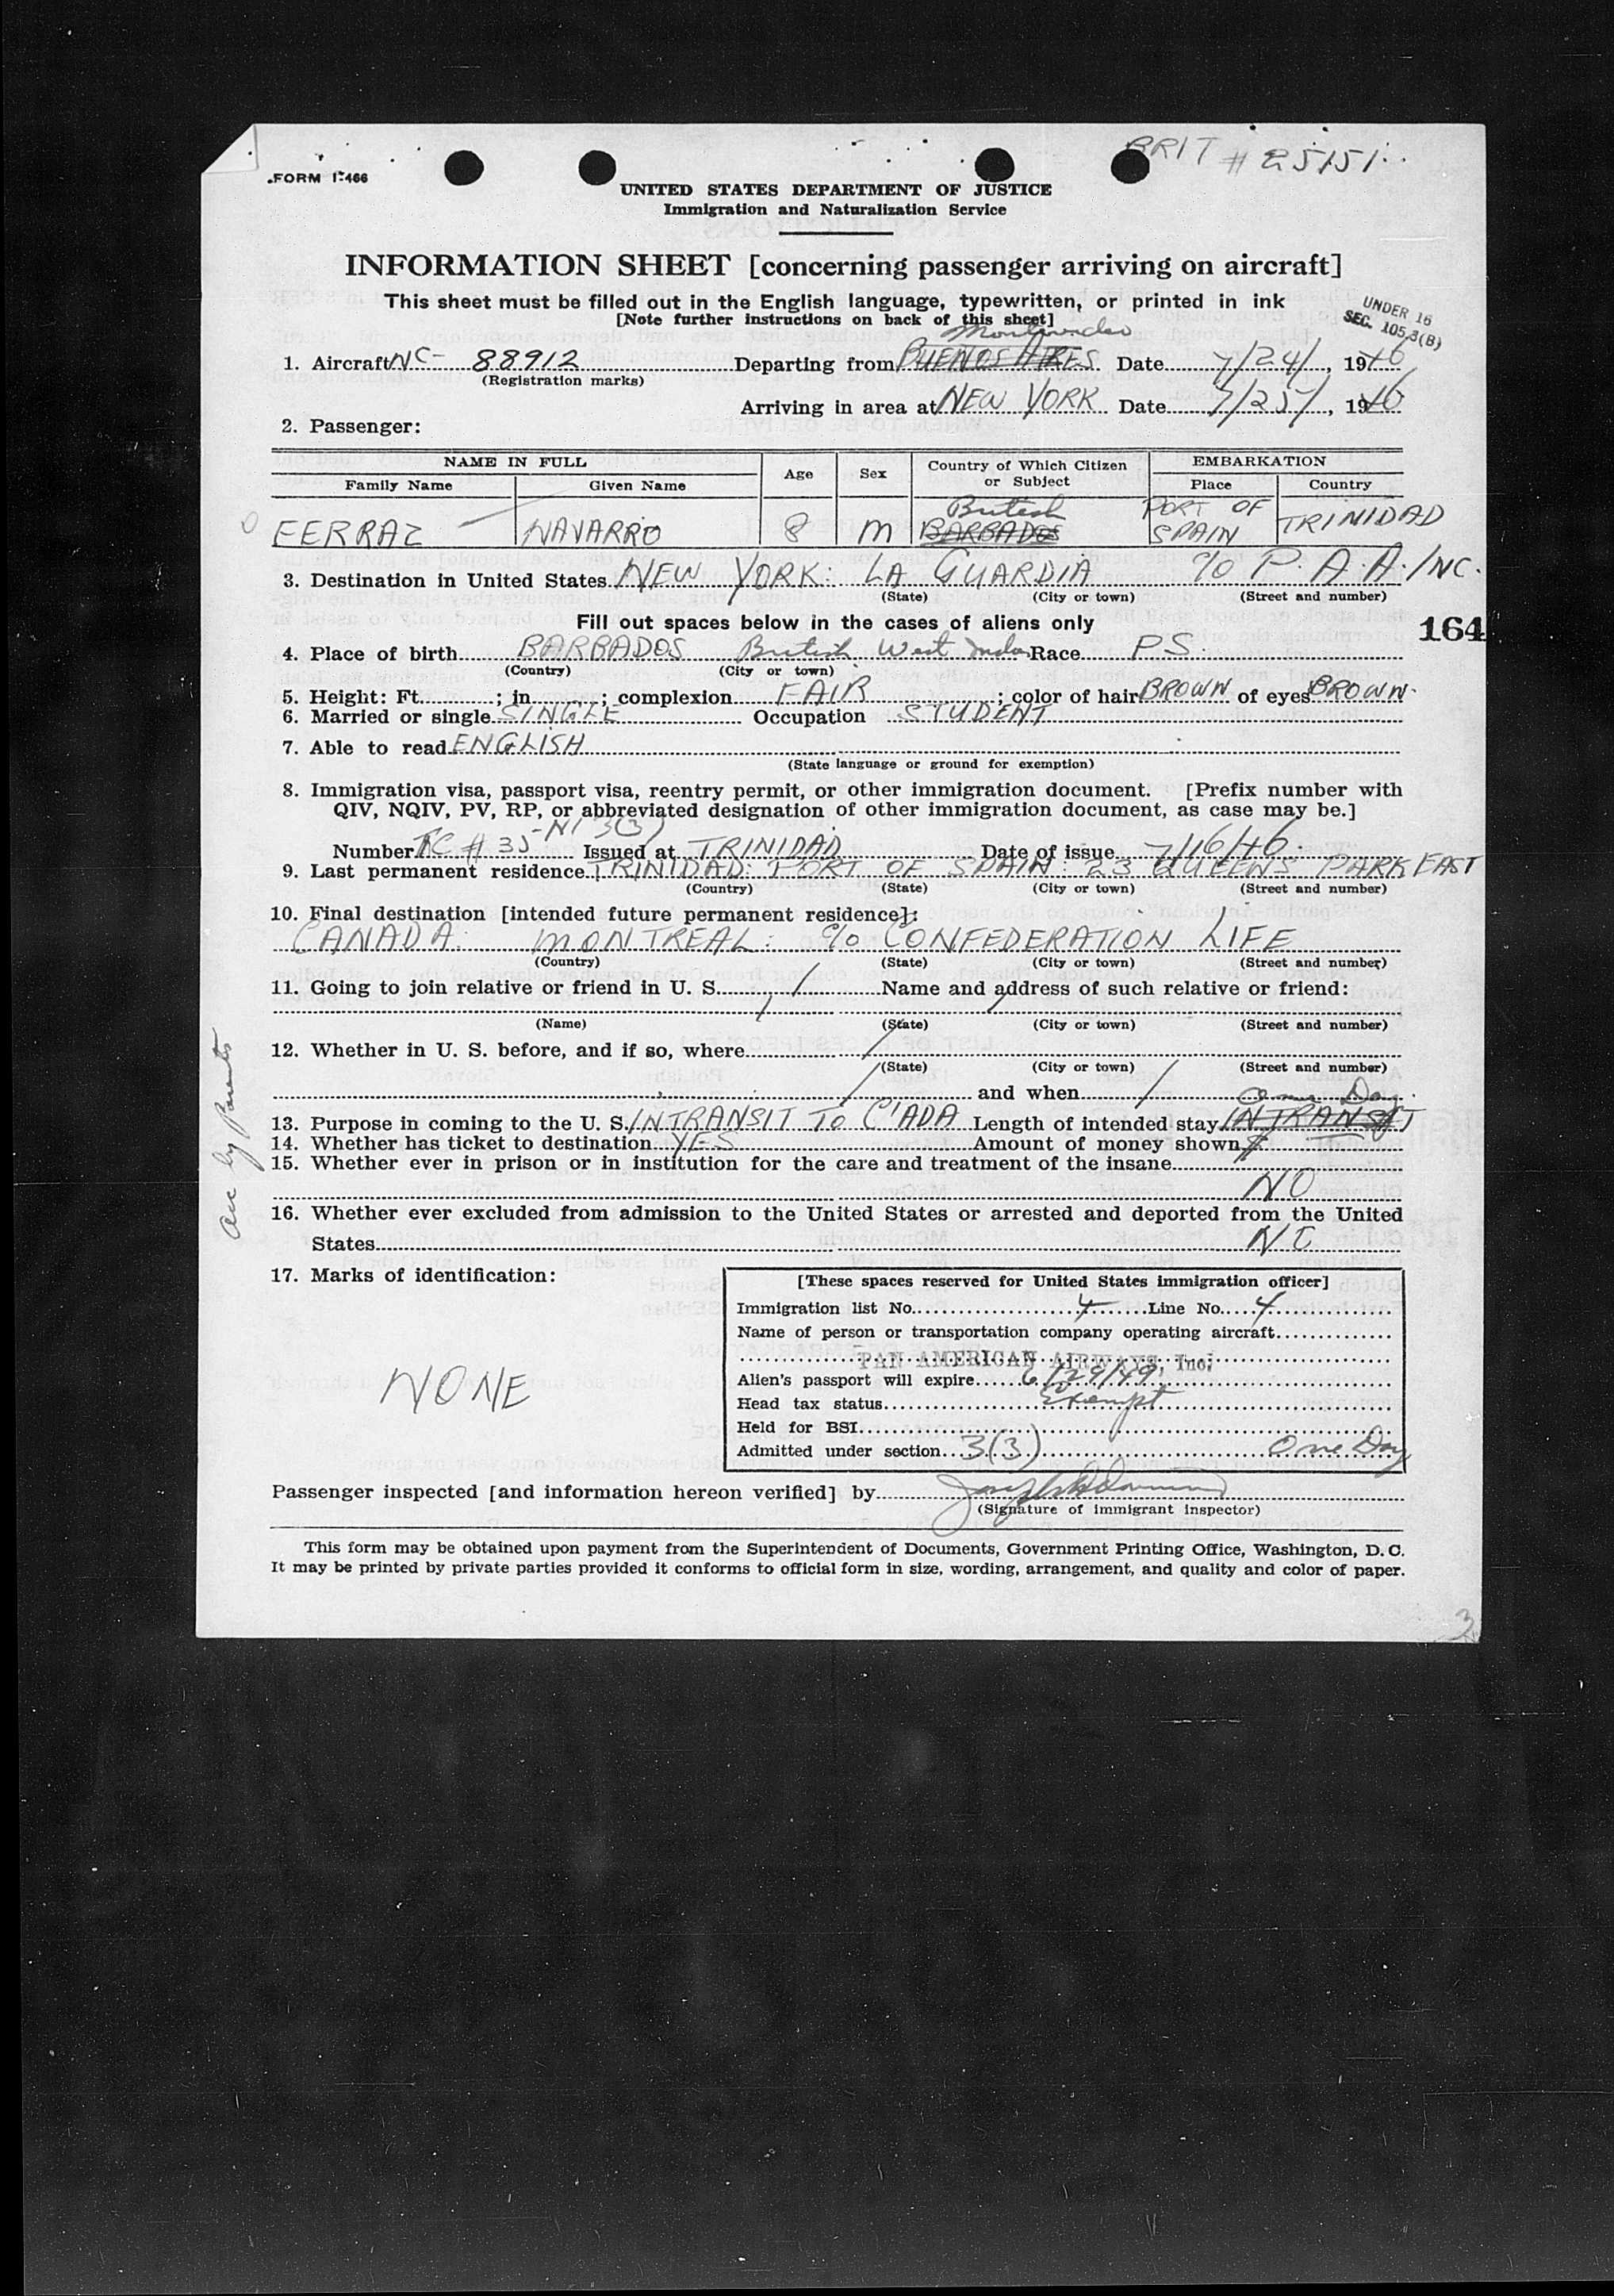 BRIT # 25151
FORM I-466
UNITED STATES DEPARTMENT OF JUSTICE
Immigration and Naturalization Service
INFORMATION SHEET [concerning passenger arriving on aircraft]
This sheet must be filled out in the English language, typewritten, or printed in ink
[Note further instructions on back of this sheet]
UNDER 16
SEC. 105.3(B)
Montevideo
1. Aircraft NC- 88912 Departing from BUENOS AIRES Date 7/24/, 1946
(Registration marks)
Arriving in area at NEW YORK Date 7/25/, 1946
2. Passenger:
NAME IN FULL Age Sex Country of Which Citizen or Subject EMBARKATION
Family Name Given Name Place Country
British PORT OF
FERRAZ NAVARRO 8 M BARBADOS SPAIN TRINIDAD
3. Destination in United States NEW YORK: LA GUARDIA c/o P.A.A. INC.
(State) (City or town) (Street and number)
Fill out spaces below in the cases of aliens only
164
4. Place of birth BARBADOS British West Indies Race PS.
(Country) (City or town)
5. Height: Ft. ; in. ; complexion FAIR ; color of hair BROWN of eyes BROWN.
6. Married or single SINGLE Occupation STUDENT
7. Able to read ENGLISH
(State language or ground for exemption)
8. Immigration visa, passport visa, reentry permit, or other immigration document. [Prefix number with
QIV, NQIV, PV, RP, or abbreviated designation of other immigration document, as case may be.]
Number TC # 35-NI 3(3) Issued at TRINIDAD Date of issue 7/16/46.
9. Last permanent residence TRINIDAD: PORT OF SPAIN: 23 QUEENS PARK EAST
(Country) (State) (City or town) (Street and number)
10. Final destination [intended future permanent residece]:
CANADA: MONTREAL: c/o CONFEDERATION LIFE
(Country) (State) (City or town) (Street and number)
11. Going to join relative or friend in U. S. / Name and address of such relative or friend:
(Name) (State) (City or town) (Street and number)
12. Whether in U. S. before, and if so, where
(State) (City or town) (Street and number)
and when
One Day
13. Purpose in coming to the U. S. INTRANSIT TO C'ADA Length of intended stay INTRANSIT
14. Whether has ticket to destination YES Amount of money shown $
15. Whether ever in prison or in institution for the care and treatment of the insane
NO
16. Whether ever excluded from admission to the United States or arrested and deported from the United
States NO
acc by Parents
17. Marks of identification:
NONE
[These spaces reserved for United States immigration officer]
Immigration list No. 4 Line No. 4
Name of person or transportation company operating aircraft
PAN AMERICAN AIRWAYS, Inc.
Alien's passport will expire 6/29/49
Head tax status Exempt
Held for BSI
Admitted under section 3(3) One Day
Passenger inspected [and information hereon verified] by
(Signature of immigrant inspector)
This form may be obtained upon payment from the Superintendent of Documents, Government Printing Office, Washington, D. C.
It may be printed by private parties provided it conforms to official form in size, wording, arrangement, and quality and color of paper.
3